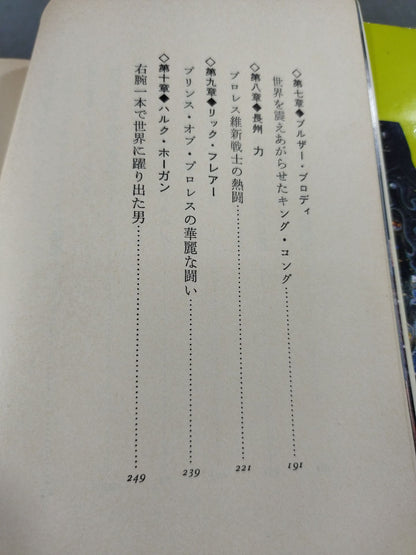 ◇第七章◆ブルザー・ブロディ
世界を震えあがらせたキング・コング……………………191
◇第八章◆長州　力
プロレス維新戦士の熱闘……………………221
◇第九章◆リック・フレアー
プリンス・オブ・プロレスの華麗な闘い……………………239
◇第十章◆ハルク・ホーガン
右腕一本で世界に躍り出た男……………………249